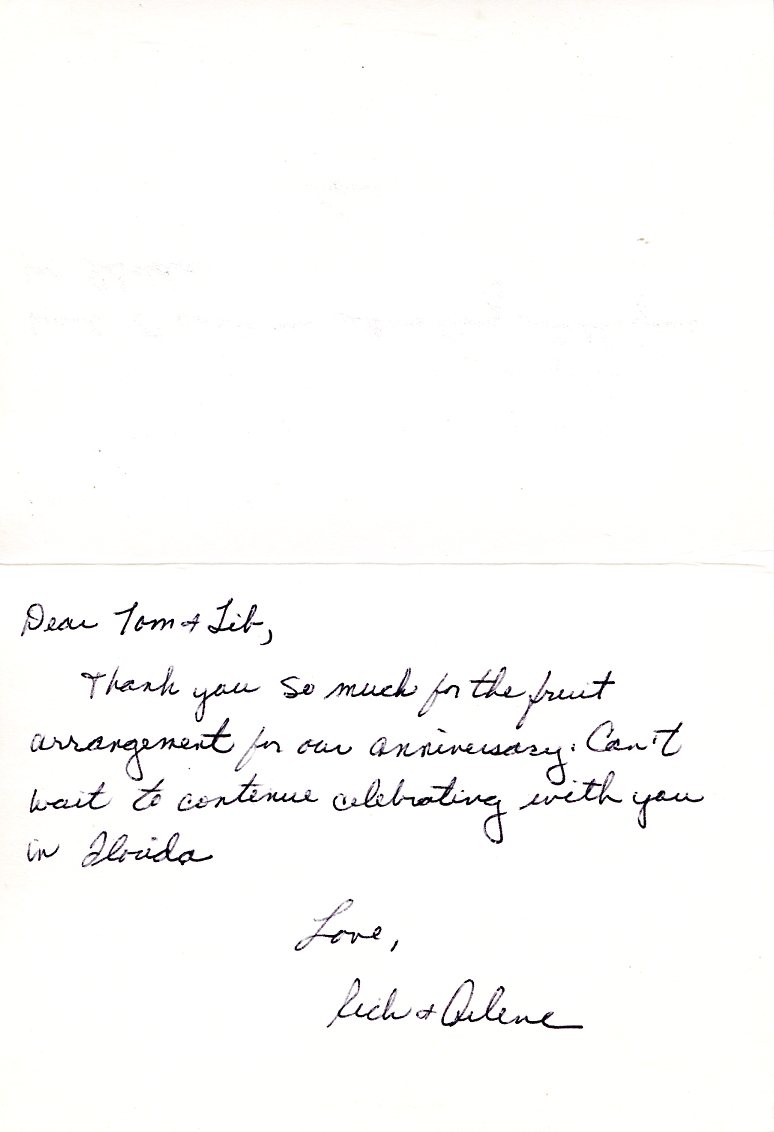 Dear Tom + Lib,
Thank you so much for the fruit
arrangement for our anniversary. Can't
wait to contenue celebrating with you
in Florida
Love,
Rich + Arlene